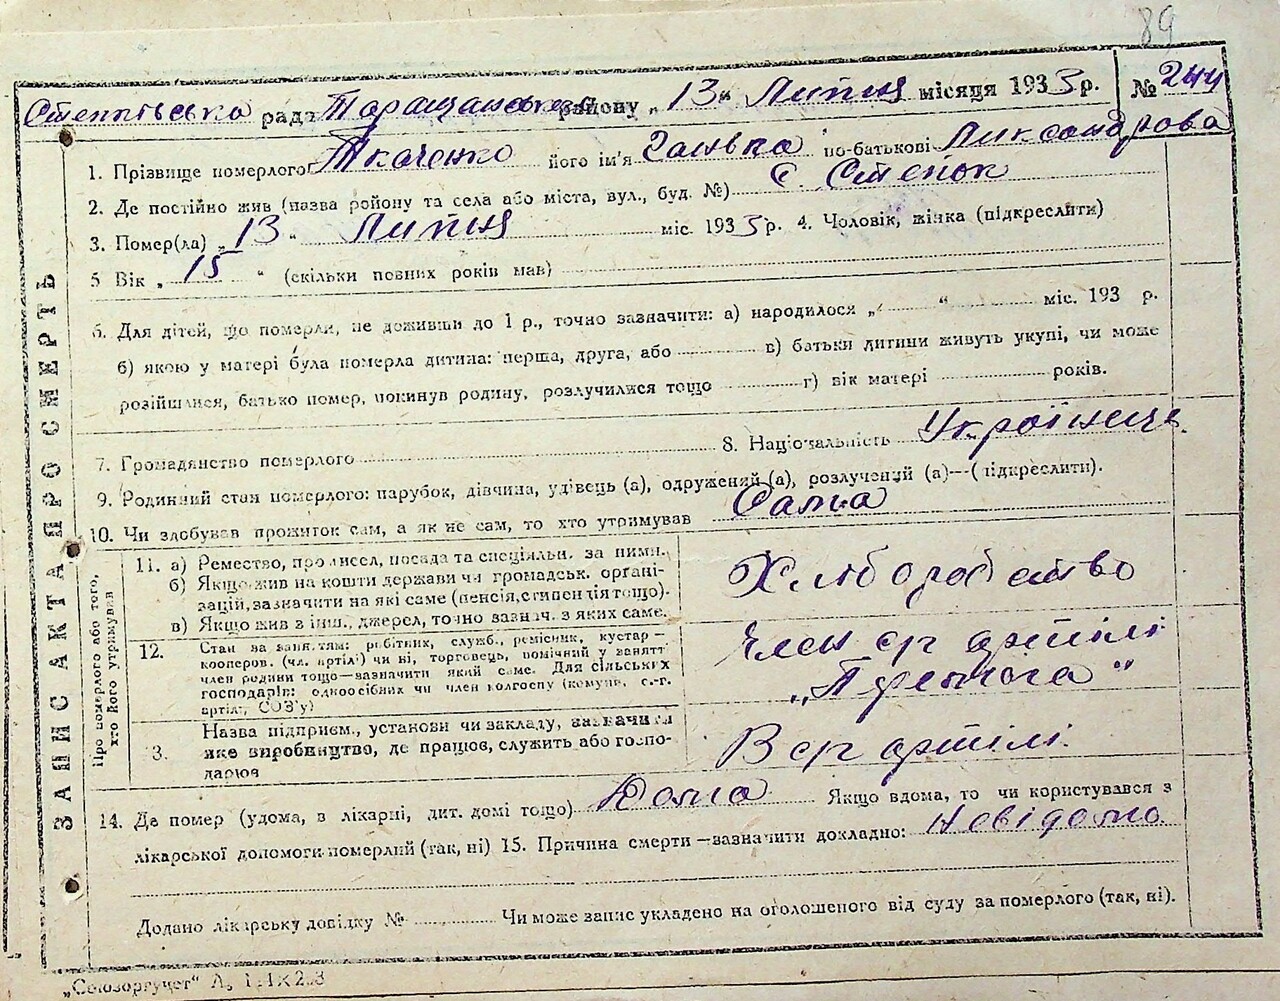 89
ЗАПИС АКТА ПРО СМЕРТЬ
Степківська рада Таращанського району „13" Липня місяця 1933 р. № 244
1. Прізвище померлого Ткаченко його ім'я Ганька по-батькові Лександрова
2. Де постійно жив (назва району та села або міста, вул., буд. №) С. Степок
3. Помер(ла) „13" Липня міс. 1933 р. 4. Чоловік, жінка (підкреслити)
5 Вік „15" (скільки повних років мав)
6. Для дітей, що померли, не доживши до 1 р., точно зазначити: а) народилося „ " міс. 193 р.
б) якою у матері була померла дитина: перша, друга, або в) батьки дитини живуть укупі, чи може
розійшлися, батько помер, покинув родину, розлучилися тощо г) вік матері років.
7. Громадянство померлого 8. Національність Українець
9. Родинний стан померлого: парубок, дівчина, удівець (а), одружений (а), розлучений (а)—(підкреслити).
10. Чи здобував прожиток сам, а як не сам, то хто утримував Сама
Про померлого або того,
хто його утримував
11. а) Ремество, промисел, посада та спеціяльн. за ними.
б) Якщо жив на кошти держави чи громадськ. органі-
зацій, зазначити на які саме (пенсія, стипендія тощо).
в) Якщо жив з інш., джерел, точно зазнач. з яких саме.
Хліборобство
12. Стан за занятям: робітник, служб., ремісник, кустар—
кооперов. (чл. артілі) чи ні, торговець, помічний у занятті
член родини тощо—зазначити який саме. Для сільських
господарів: одноосібних чи член колгоспу (комуни, с.-г.
артілі, СОЗ'у)
Член с/г артілі
3. Назва підприєм., установи чи закладу, зазначити
яке виробництво, де працює, служить або госпо-
дарює
В с/г артілі.
14. Де помер (удома, в лікарні, дит. домі тощо) Дома Якщо вдома, то чи користувався з
лікарської допомоги померлий (так, ні) 15. Причина смерти—зазначити докладно: невідомо
Додано лікарську довідку № Чи може запис укладено на оголошеного від суду за померлого (так, ні).
„Союзоргучет"